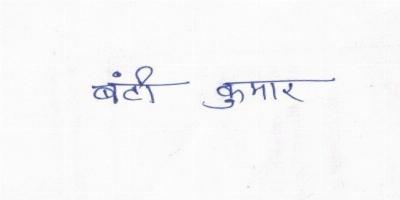 बंटी कुमार